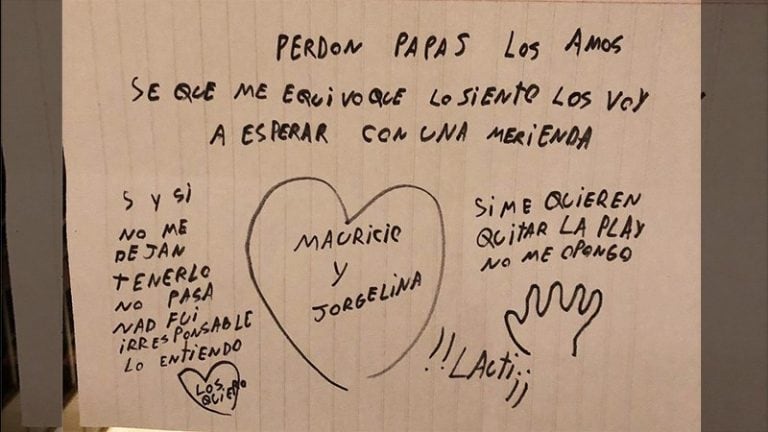 PERDON PAPAS LOS AMOS
SE QUE ME EQUIVOQUE LO SIENTO LOS VOY
A ESPERAR CON UNA MERIENDA
S Y SI
NO ME
DEJAN
TENERLO
NO PASA
NAD FUI
IRRESPONSABLE
LO ENTIENDO
LOS
QUIERO
MAURICIO
Y
JORGELINA
SI ME QUIEREN
QUITAR LA PLAY
NO ME OPONGO
!!LACTI